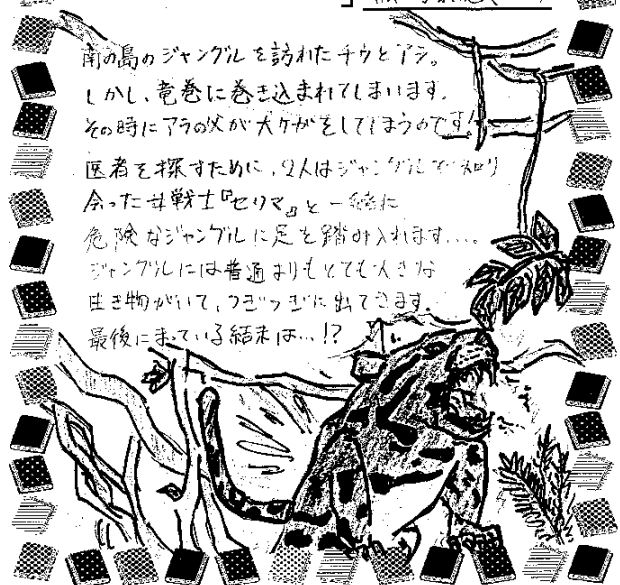 南の島のジャングルを訪れたチウとアラ。
しかし、竜巻に巻き込まれてしまいます。
その時にアラの父が大ケガをしてしまうのです!
医者を探すために、2人はジャングルで知り
会った女戦士『セリマ』と一緒に
危険なジャングルに足を踏み入れます…。
ジャングルには普通よりもとても大きな
生き物がいて、つぎつぎに出てきます。
最後にまっている結末は…!?